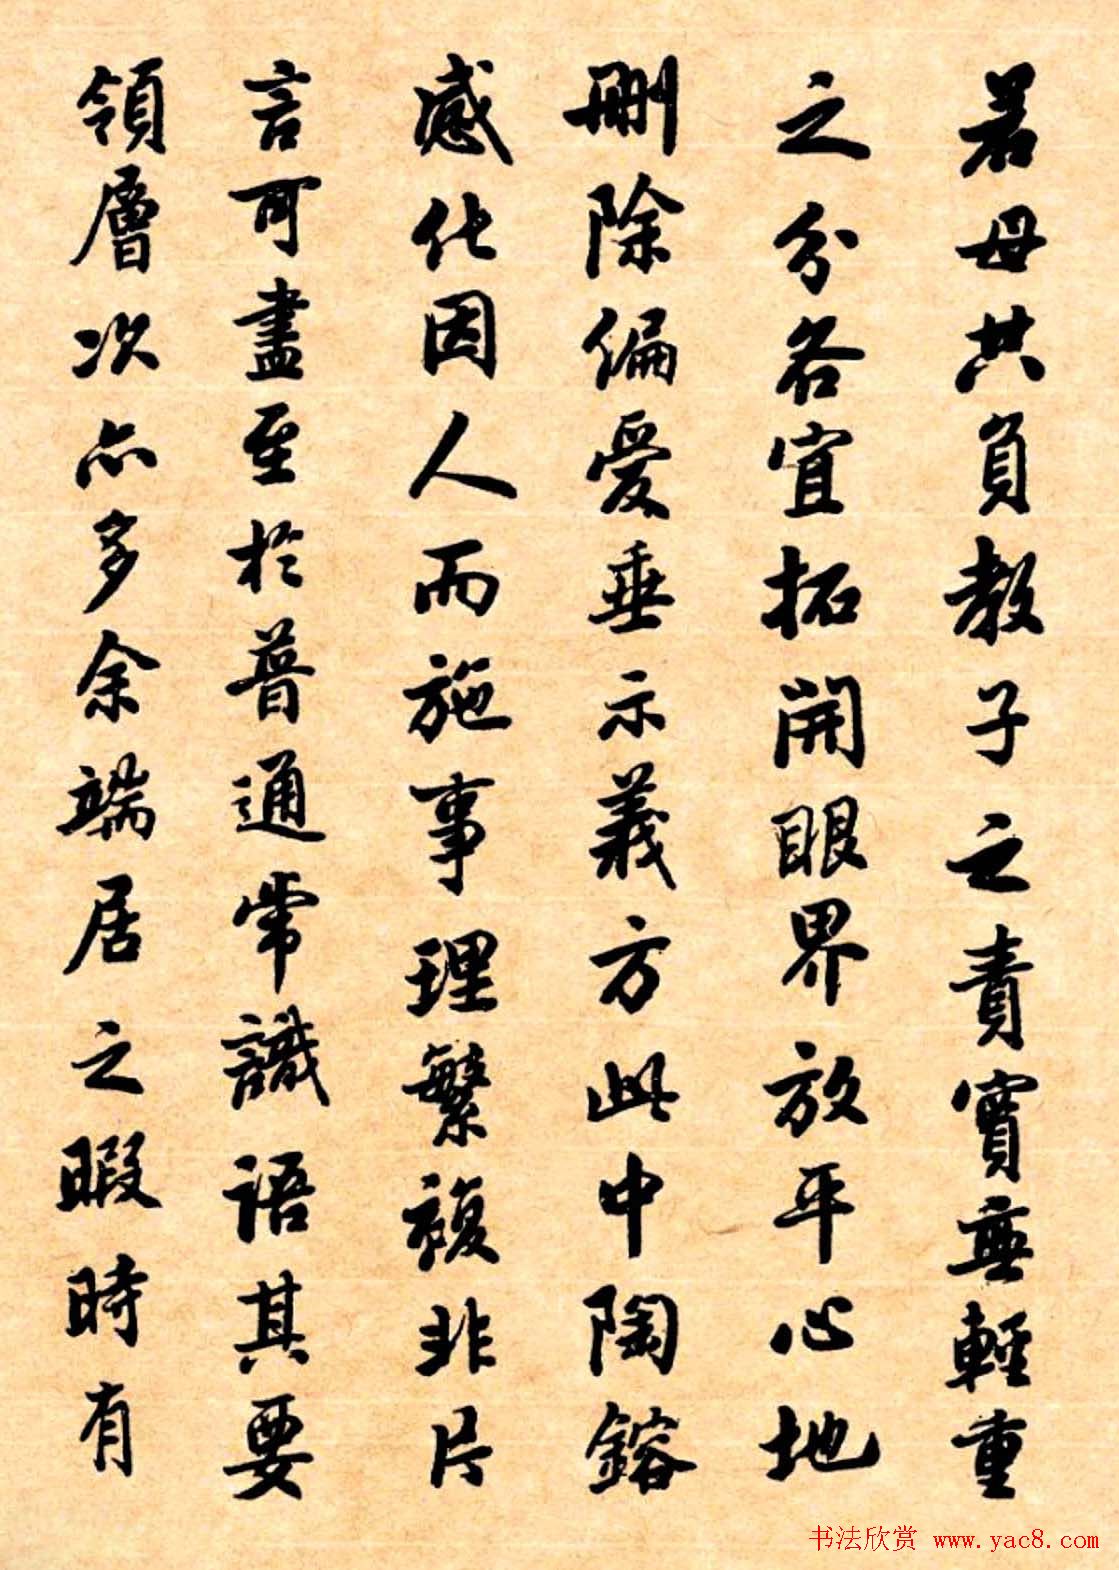 若母共負教子之責實無輕重
之分各宜拓開眼界放平心地
刪除偏愛垂示義方此中陶鎔
感化因人而施事理繁複非片
言可盡至於普通常識語其要
領層次亦多余端居之暇時有
书法欣赏 www.yac8.com